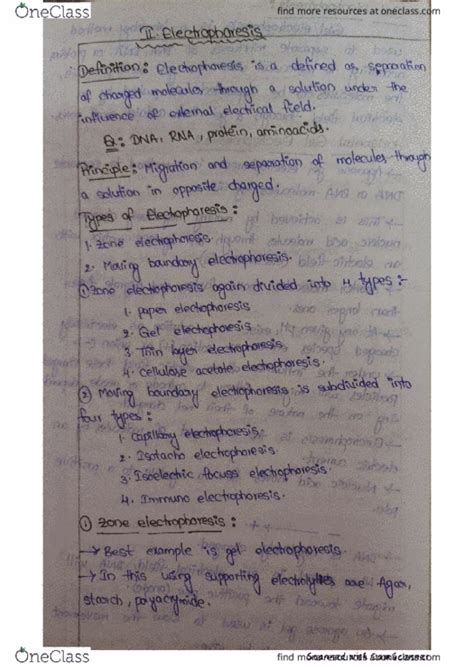 OneClass
find more resources at oneclass.com
II. Electrophoresis
Definition : Electrophoresis is a defined as separation
of charged molecules through a solution under the
influence of external electrical field.
Ex: DNA, RNA, protein, aminoacids.
Principle : Migration and separation of molecules through
a solution in opposite charged.
Types of Electrophoresis :
1. Zone electrophoresis.
2. Moving boundary electrophoresis.
① Zone electrophoresis again divided into 4 types :-
1. paper electrophoresis
2. Gel electrophoresis
3. Thin layer electrophoresis
4. Cellulose acetate electrophoresis.
② Moving boundary electrophoresis is subdivided into
four types :
1. Capillary electrophoresis.
2. Isotacho electrophoresis.
3. Isoelectric focuss electrophoresis.
4. Immuno electrophoresis.
① Zone electrophoresis :
→ Best example is gel electrophoresis.
→ In this using supporting electrolytes are Agar,
starch,
OneClass
find more resources at oneclass.com